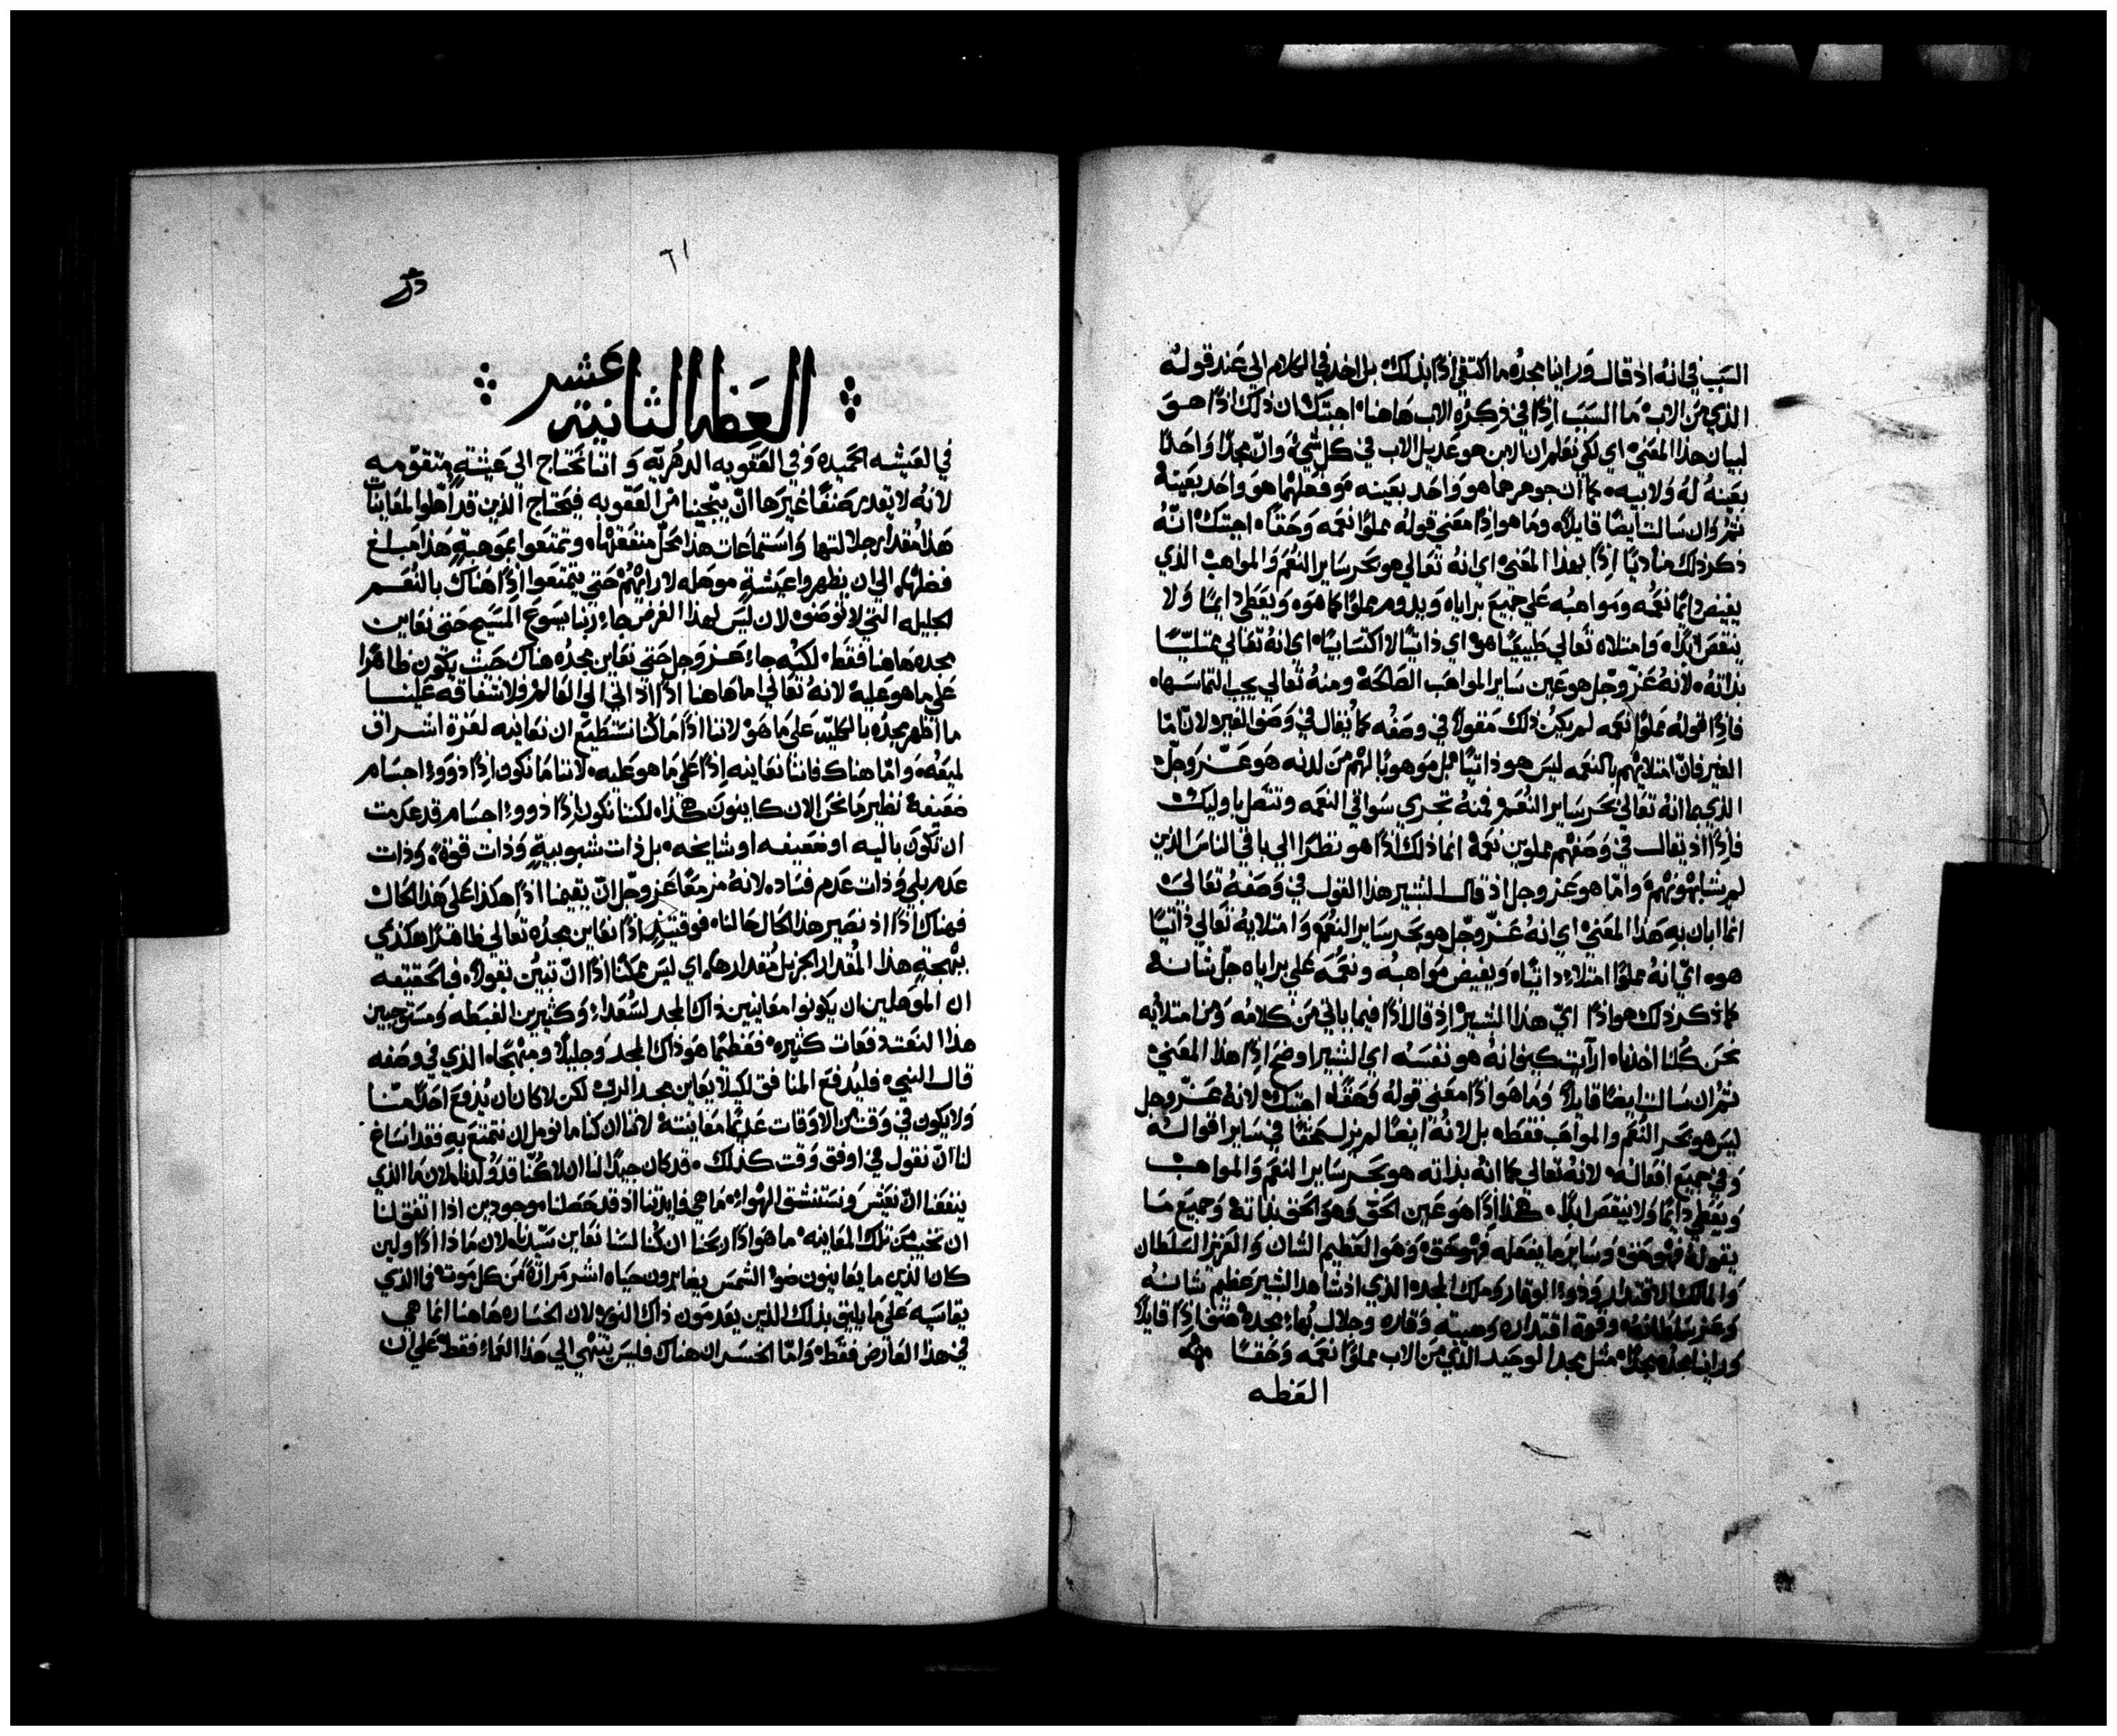 السبب في انه اذ قال وراينا مجده ما اكتفي اذًا بذلك بل اخذ في الكلام الي عند قوله
الذي من الاب ما السبب اذًا في ذكره الاب هاهنا اجبتك ان ذلك اذًا هو
لبيان هذا المعني اي لكي نعلم ان الابن هو عديل الاب في كل شي وان مجدًا واحدًا
بعينه له ولابيه كما ان جوهرهما هو واحد بعينه وفعلهما هو واحد بعينه
ثم وان سالت ايضًا قايلًا وما هو اذًا معني قوله مملوًا نعمه وحقًا اجبتك انه
ذكر ذلك مناديًا اذًا بهذا المعني اي انه تعالي هو بحر ساير النعم والمواهب الذي
يفيض دايمًا نعمه ومواهبه علي جميع براياه ويدوم مملوًا كما هو ويعطي دايمًا ولا
ينقص ابدًا وامتلاه تعالي طبيعيًا هو اي ذاتيًا لا اكتسابيًا اي انه تعالي ممتليًا
بذاته لانه عز وجل هو عين ساير المواهب الصالحه ومنه تعالي يجب التماسها
فاذًا قوله مملوًا نعمه لم يكن ذلك مقولًا في وصفه كما يقال في وصف الغير لان اما
الغير فان امتلايهم بالنعمه ليس هو ذاتيًا بل موهوبًا لهم من لدنه هو عز وجل
الذي بما انه تعالي بحر ساير النعم فمنه تجري سواقي النعمه وتتصل باوليك
فاذًا اذ يقال في وصفهم مملوين نعمه انما ذلك اذًا هو نظرًا الي باقي الناس الذين
لم يشابهونهم واما هو عز وجل اذ قال البشير هذا القول في وصفه تعالي
انما ابان به هذا المعني اي انه عز وجل هو بحر ساير النعم وامتلايه تعالي ذاتيًا
هو اي انه مملوًا امتلاءً ذاتيًا ويفيض مواهبه ونعمه علي براياه جل شانه
كما ذكر ذلك هو اذًا اي هذا البشير اذ قال اذًا فيما ياتي من كلامه ومن امتلايه
نحن كلنا اخذنا ارآيت كيف انه هو نفسه اي البشير اوضح اذًا هذا المعني
ثم ان سالت ايضًا قايلًا وما هو اذًا معني قوله وحقًا اجبتك لانه عز وجل
ليس هو بحر النعم والمواهب فقط بل لانه ايضًا لم يزل محقًا في ساير اقواله
وفي جميع افعاله لانه تعالي كما انه بذاته هو بحر ساير النعم والمواهب
ويعطي دايمًا ولا ينقص ابدًا هكذا اذًا هو عين الحق وهو الحق بذاته وجميع ما
يقوله فهو حق وساير ما يفعله فهو حق وهو العظيم الشان والعزيز السلطان
والمالك الاقتدار وذو الوقار وملك المجد الذي اذ شاهد البشير عظم شانه
وعز سلطانه وقوة اقتداره وهيبة وقاره وجلال بهاء مجده هتف اذًا قايلًا
وراينا مجده مجدًا مثل مجد الوحيد الذي من الاب مملوًا نعمه وحقًا
العظه
٦١
العظه الثانيه عشر
في العيشه الحميده وفي العقوبه الدهريه واننا نحتاج الي عيشةٍ متقومه
لانه لا يقدر صنفًا غيرها ان ينجينا من العقوبه فيحتاج الذين قد اهلوا لمعاينات
هذا مقدار جلالتها واستماعات هذا محل منفعتها وتمتعوا بموهبةٍ هذا مبلغ
فضلها الي ان يظهروا عيشةٍ موهله لارائهم حتي يتمتعوا اذًا هناك بالنعم
الجليله التي لا توصف لان ليس لهذا الغرض جاء ربنا يسوع المسيح حتي نعاين
مجده هاهنا فقط لكنه جاء عز وجل حتي نعاين مجده هناك حيث يكون ظاهرًا
علي ما هو عليه لانه تعالي اما هاهنا اذًا اذ اتي الي العالم ولاشفاقه علينا
ما اظهر مجده بالكليه علي ما هو لاننا اذًا ما كنا نستطيع ان نعاينه لغزة اشراق
لميعه واما هناك فاننا نعاينه اذًا علي ما هو عليه لاننا ما نكون اذًا ذوو اجسام
ضعيفه نظير ما نحن الان كاينون هكذا لكننا نكون اذًا ذوو اجسام قد عدمت
ان تكون باليه او ضعيفه او شايخه بل ذات شبوبيةٍ وذات قوة وذات
عدم بلي وذات عدم فساد لانه مزمعًا عز وجل ان يقيمنا اذًا هكذا علي هذا الحال
فهناك اذًا اذ نصير هذا الحال حالنا فوقتيذٍ اذًا نعاين مجده تعالي ظاهرًا هكذي
ببهجةٍ هذا المقدار الجزيل مقدارها اي ليس ممكنًا اذًا ان تبين بقولًا فبالحقيقه
ان الموهلين ان يكونوا معاينين ذاك المجد لسعداء وكثيرين الغبطه ومستوجبين
هذا النعت دفعات كثيره فعظيمًا هو ذاك المجد وجليلًا ومبهجًا الذي في وصفه
قال النبي فليدفع المنافق لكيلا يعاين مجد الرب لكن لا كان ان يُدفع احدًا منا
ولا يكون في وقت من الاوقات عديمًا معاينته لاننا ان كنا ما نومل ان نتمتع به فقد اساغ
لنا ان نقول في اوفق وقت كذلك قد كان جيدًا لنا ان لا كنا قد ولدنا لان ما الذي
ينفعنا ان نعيش ونستنشق الهواء ما هي فايدتنا اذ قد حصلنا موجودين اذا اتفق لنا
ان نخيب من تلك المعاينه ما هو اذًا ربحنا ان كنا لسنا نعاين سيدنا لان ماذا اذًا ولين
كان الذين ما يعاينون ضو الشمس يقاسون حياه اشر مرارةً من كل موت فما الذي
يقاسيه علي ما يليق بذلك الذين يعدمون ذاك النور لان الخساره هاهنا انما هي
في هذا العارض فقط واما الخسران هناك فليس ينتهي الي هذا العماء فقط علي ان